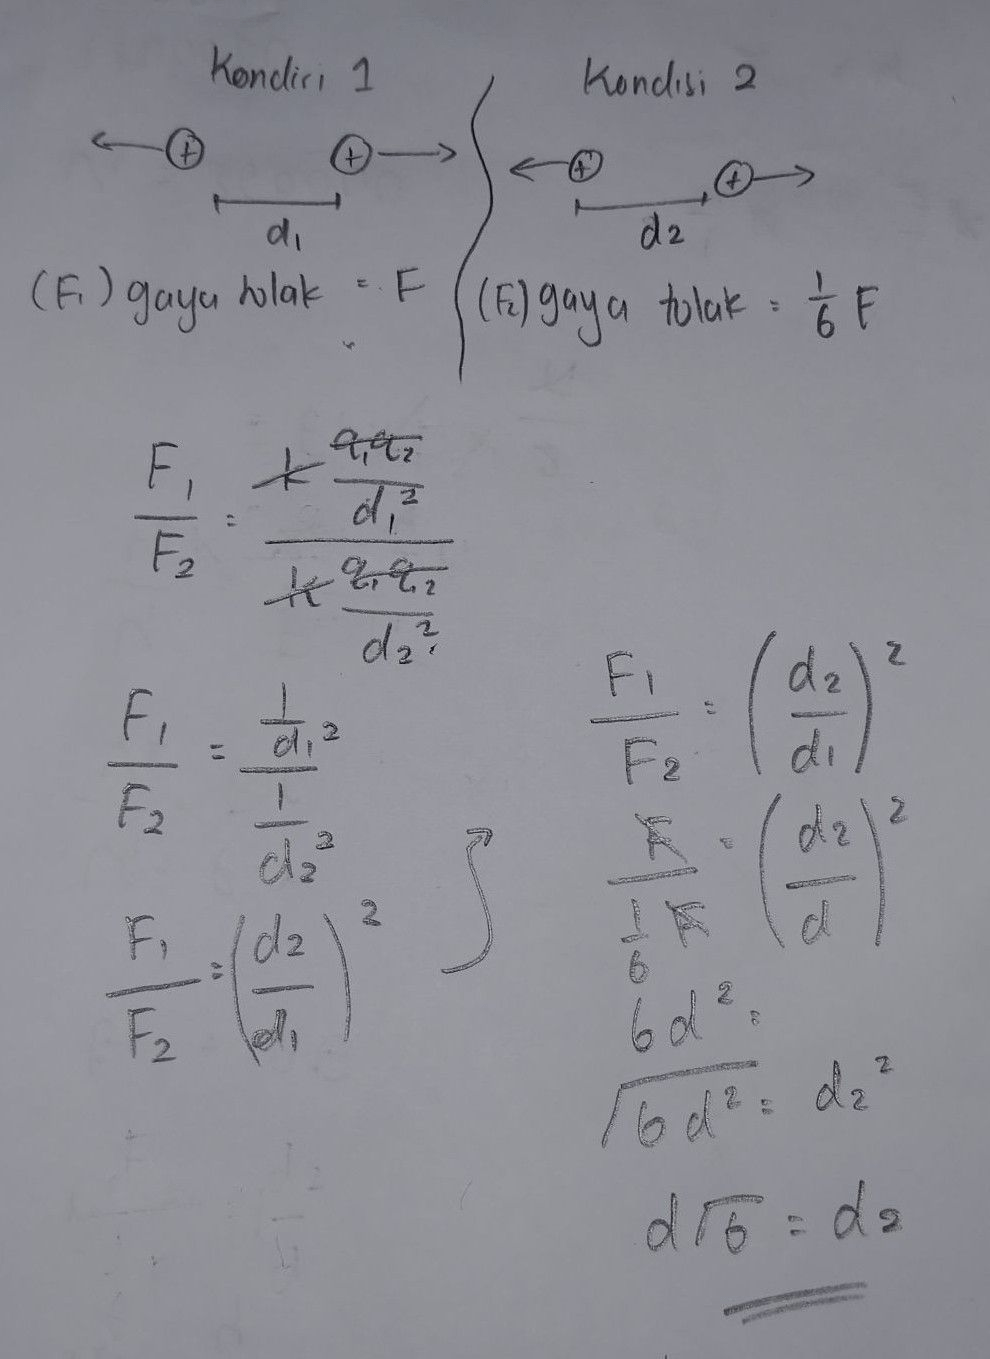 Kondisi 1
+ +
d₁
(F₁) gaya tolak = F
Kondisi 2
+ +
d2
(F2) gaya tolak = 1/6 F
F₁/F₂ = (k q₁q₂/d₁²)/(k q₁q₂/d₂²)
F₁/F₂ = (1/d₁²)/(1/d₂²)
F₁/F₂ = (d₂/d₁)²
F₁/F₂ = (d₂/d₁)²
F/(1/6 F) = (d₂/d)²
6d² =
√6d² = d₂²
d√6 = d₂